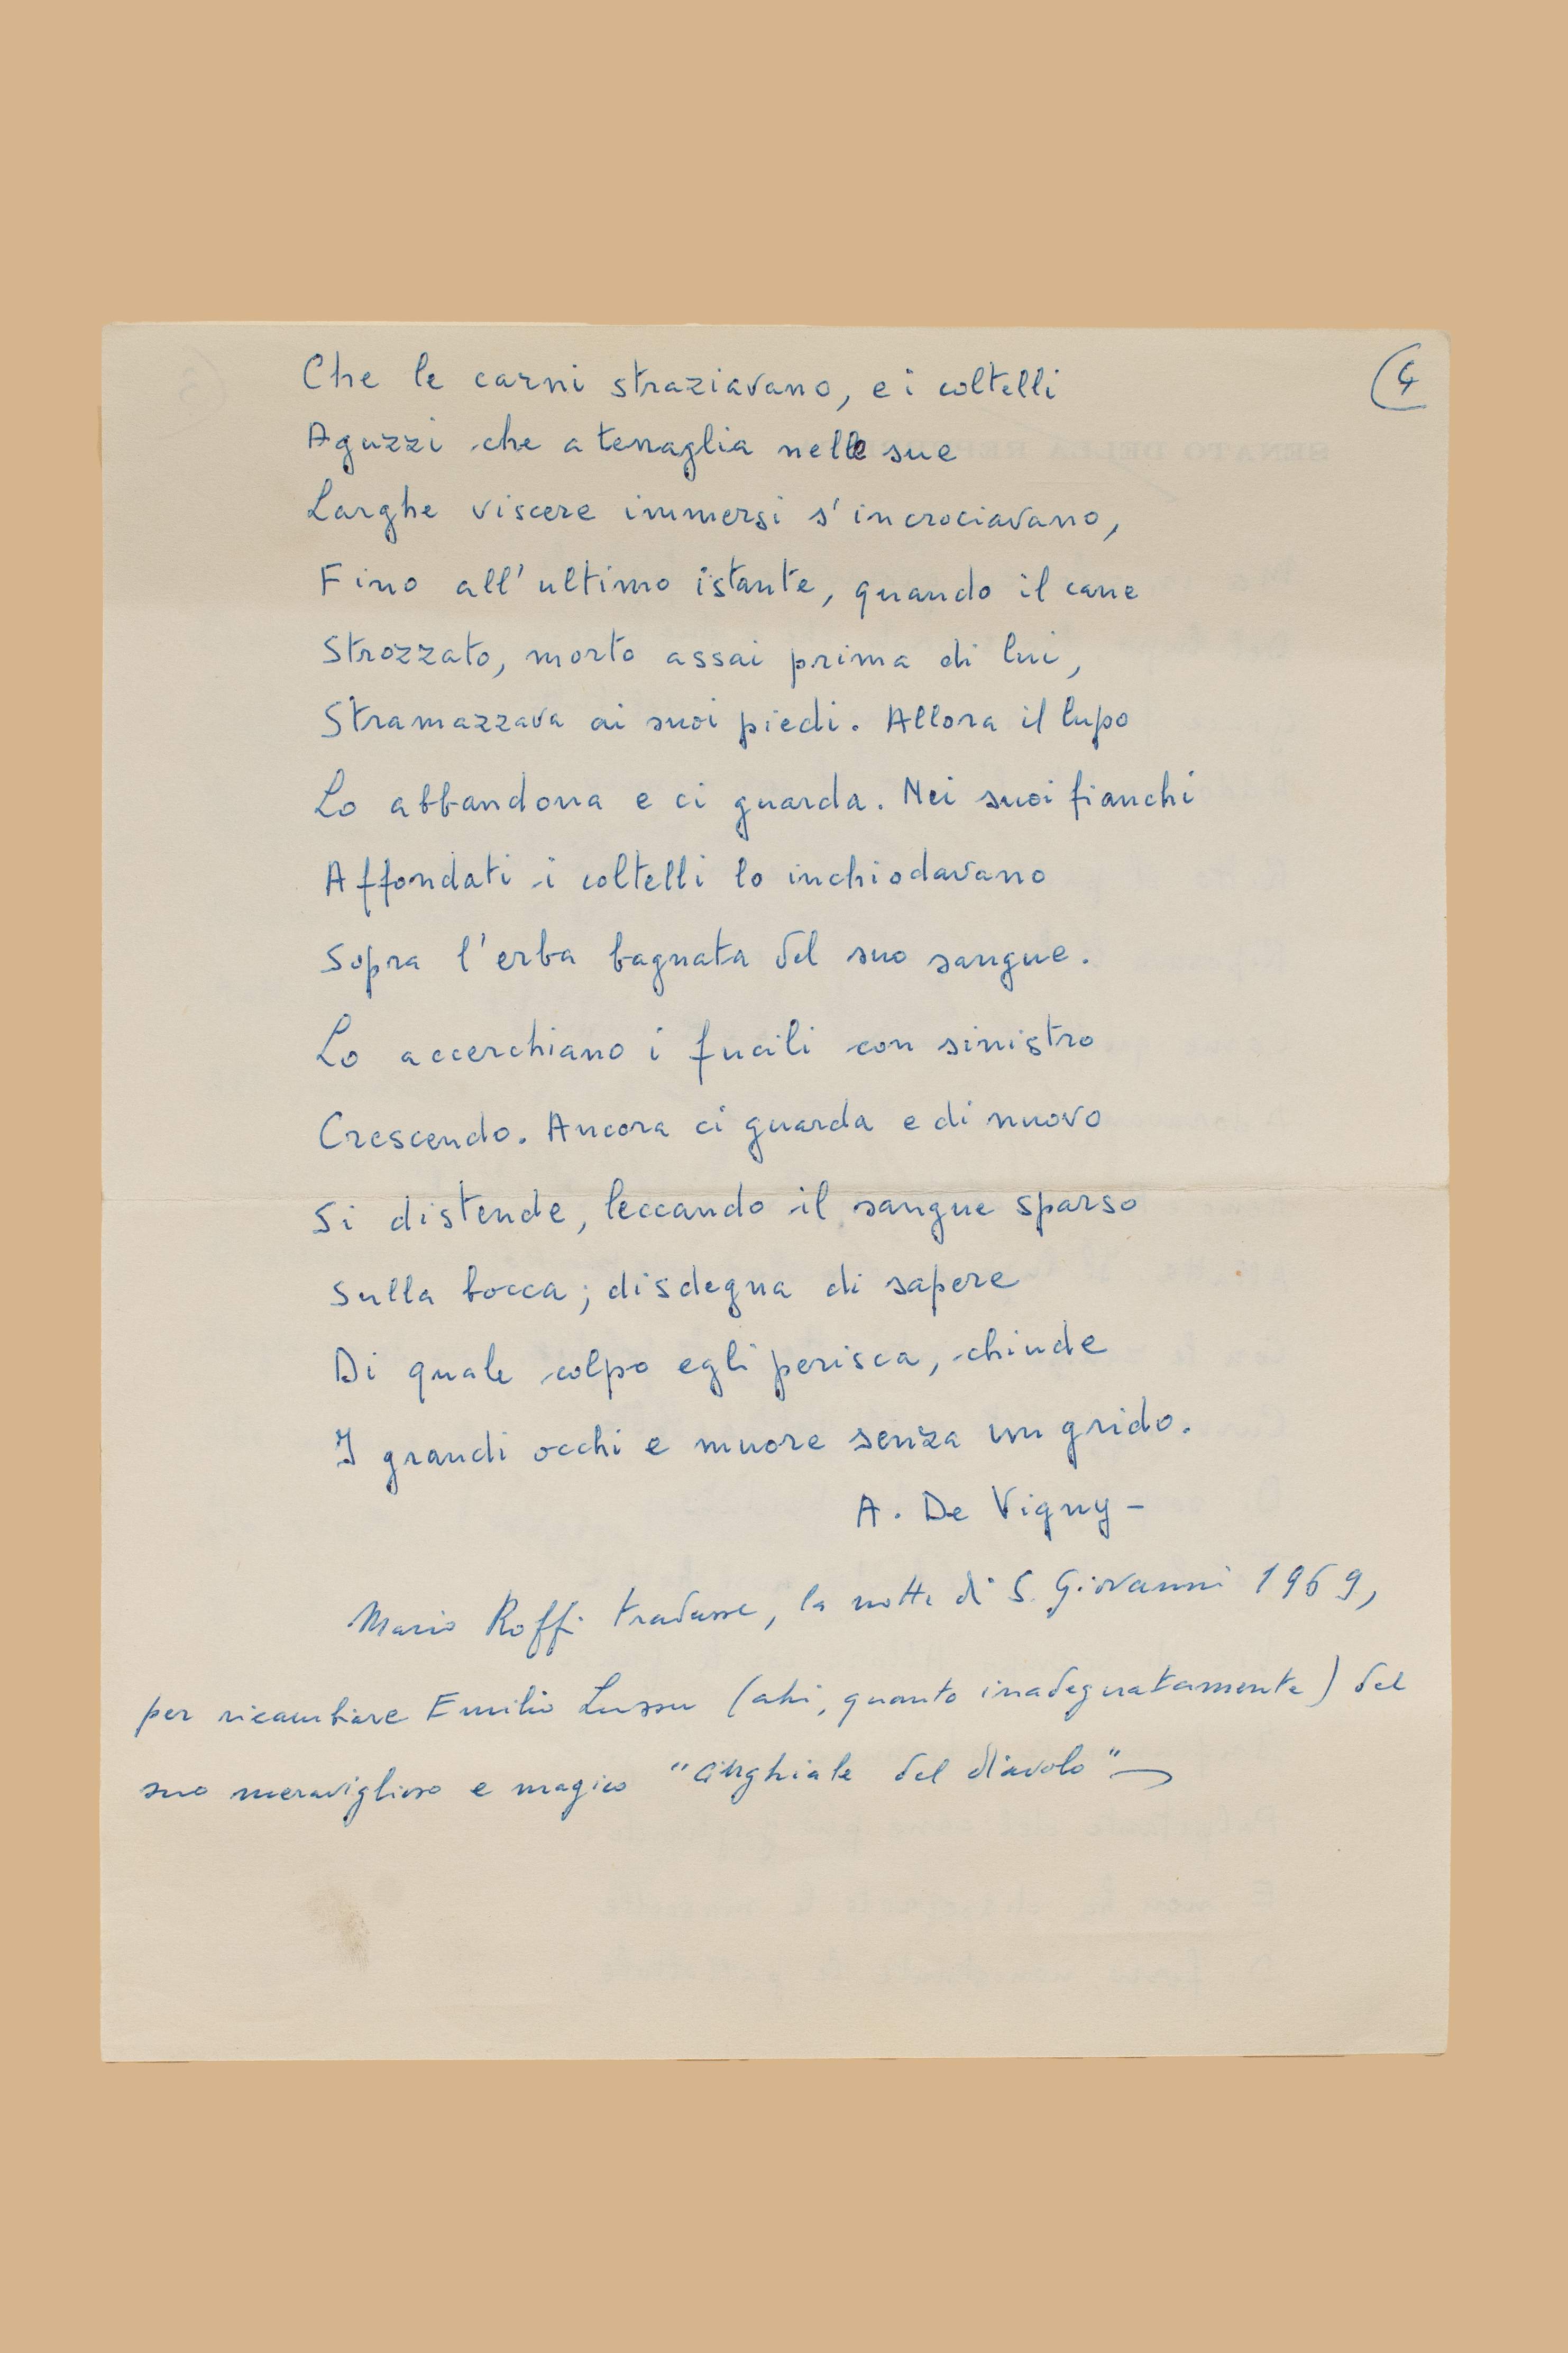 (4
Che le carni straziavano, e i coltelli
Aguzzi che a tenaglia nelle sue
Larghe viscere immersi s'incrociavano,
Fino all'ultimo istante, quando il cane
Strozzato, morto assai prima di lui,
Stramazzava ai suoi piedi. Allora il lupo
Lo abbandona e ci guarda. Nei suoi fianchi
Affondati i coltelli lo inchiodavano
Sopra l'erba bagnata del suo sangue.
Lo accerchiano i fucili con sinistro
Crescendo. Ancora ci guarda e di nuovo
Si distende, leccando il sangue sparso
Sulla bocca; disdegna di sapere
Di quale colpo egli perisca, chiude
I grandi occhi e muore senza un grido.
A. De Vigny -
Mario Roffi tradusse, la notte di S. Giovanni 1969,
per ricambiare Emilio Lussu (ahi, quanto inadeguatamente) del
suo meraviglioso e magico "Cinghiale del diavolo"
SENATO DELLA REPUBBLICA